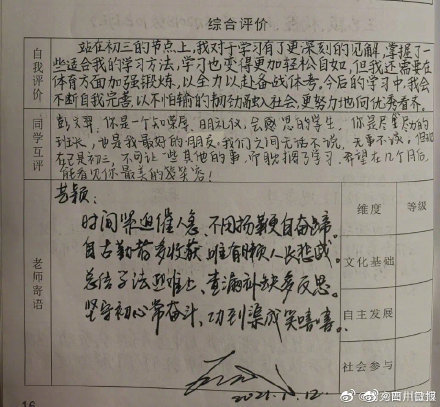 综合评价
自我评价
站在初三的节点上,我对于学习有了更深刻的见解,掌握了一
些适合我的学习方法,学习也变得更加轻松自如,但我还需要在
体育方面加强锻炼,以全力以赴备战体考。今后的学习中,我会
不断自我完善,以不怕输的韧劲融入社会,更努力地向优秀看齐。
同学互评
你是一个知荣辱、明礼仪、会感恩的学生。你是尽量尽力的
班长,也是我最好的朋友,我们之间无话不说,无事不谈,但现
在已是初三,不可让一些其他的事,耽搁了学习,希望在几个月后,
能看见你最美的笑容!
老师寄语
时间紧迫催人急,不用扬鞭自奋蹄。
自古勤苦多收获,唯有懒人长悲戚。
总结方法迎难上,查漏补缺多反思。
坚守初心常奋斗,功到渠成笑嘻嘻。
2021.
12
维度
等级
文化基础
自主发展
社会参与
16
@四川微报